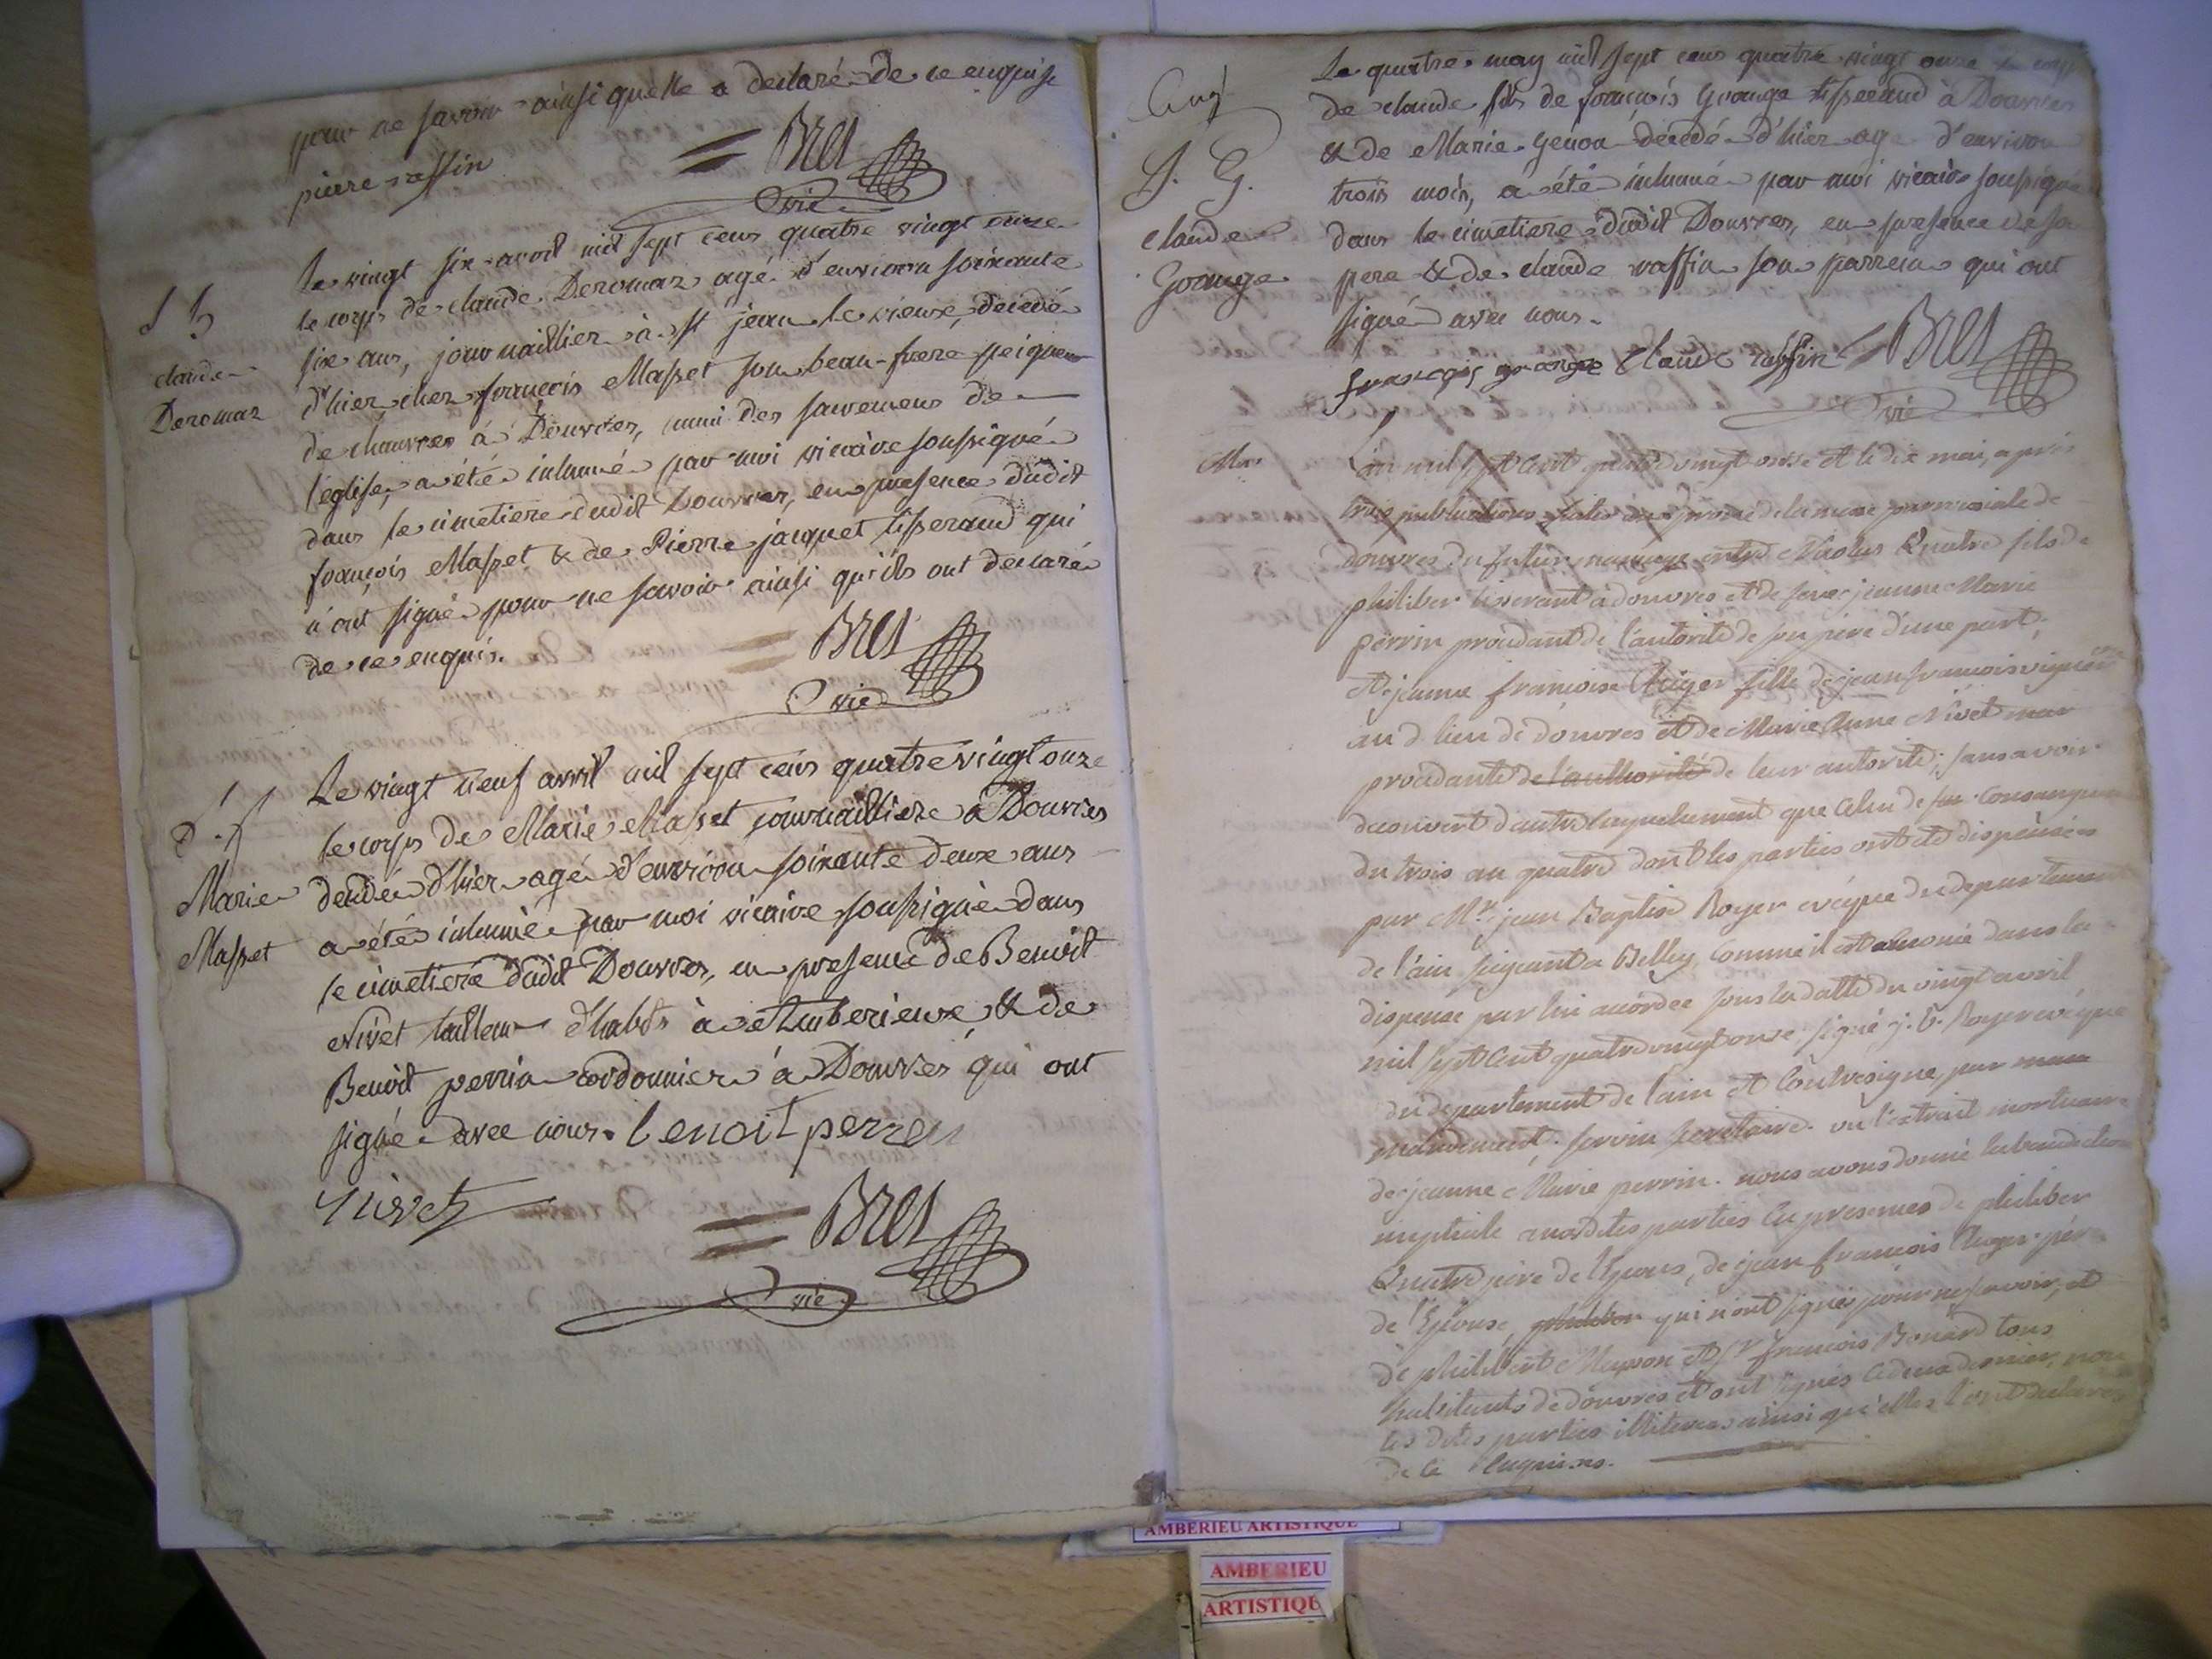 pour ne savoir ainsi quelle a declaré de ce enquise
pierre raffin = Bret
vic
S
claude
Deromaz
Le vingt six avril mil sept cens quatre vingt onze
le corps de claude Deromaz agé d'environ soixante
six ans, journaillier à st jean le vieux, decedé
d'hier chez francois Masset son beau-frere peigneur
de chanvres à Douvres, muni des sacremens de
l'église, a été inhumé par moi vicaire soussigné
dans le cimetiere dudit Douvres, en presence dudit
françois Masset & de Pierre jacquet tisserand qui
n'ont signé pour ne savoir ainsi qu'ils ont declaré
de ce enquis. = Bret
vic
Marie
Masset
Le vingt neuf avril mil sept cens quatre vingt onze
le corps de Marie Masset journailliere à Douvres
decédée d'hier agé d'environ soixante deux ans
a été inhumé par moi vicaire soussigné dans
le cimetiere dudit Douvres, en presence de Benoit
Nivet tailleur d'habits à Amberieux & de
Benoit perrin cordonnier à Douvres qui ont
signé avec nous. benoit perren
Nivet
= Bret
vic
S. G.
claude
Grange
Le quatre may mil sept cens quatre vingt onze le corps
de claude fils de françois Grange tisserand à Douvres
& de Marie Genon décédé d'hier agé d'environ
trois mois, a été inhumé par moi vicaire soussigné
dans le cimetiere dudit Douvres, en presence de son
pere & de claude raffin son parrein qui ont
signé avec nous.
françois grange Claude raffin Bret
vic
Mar
L'an mil sept cent quatre vingt onse et le dix mai, après
trois publications faites au prone de la messe parroissiale de
douvres du futur mariage entre Nicolas Quatre fils de
philiber tisserant à douvres et de feue jeanne Marie
perrin procédant de l'autorité de son père d'une part,
et jeanne françoise Auger fille de jean francois vigneron
au d. lieu de douvres et de Marie Anne Nivet
procédante de l'authorité de leur autorité; sans avoir
découvert d'autre empechement que celui de consanguinité
du trois au quatre dont les parties ont été dispensées
par Mr. jean Baptiste Royer evêque du departement
de l'ain siégeant a Belley comme il est enoncé dans la
dispense par lui accordée sous la datte du vingt avril
mil sept cent quatre vingt onse, signé j. b. Royer evêque
du departement de l'ain et contresigné, par
mandement, secretaire. vu l'extrait mortuaire
de jeanne Marie perrin. nous avons donné la benediction
nuptiale auxdites parties en presences de philiber
Quatre père de l'Epoux, de jean françois Auger père
de l'Epouse, philiber qui n'ont signés pour ne savoir, et
de philibert et sr françois Bonard tous
habitants de douvres et ont signés ce deux dernier, non
les dites parties illiterees ainsi qu'elles l'ont declarées
de ce enquises.
AMBERIEU ARTISTIQUE
AMBERIEU
ARTISTIQUE